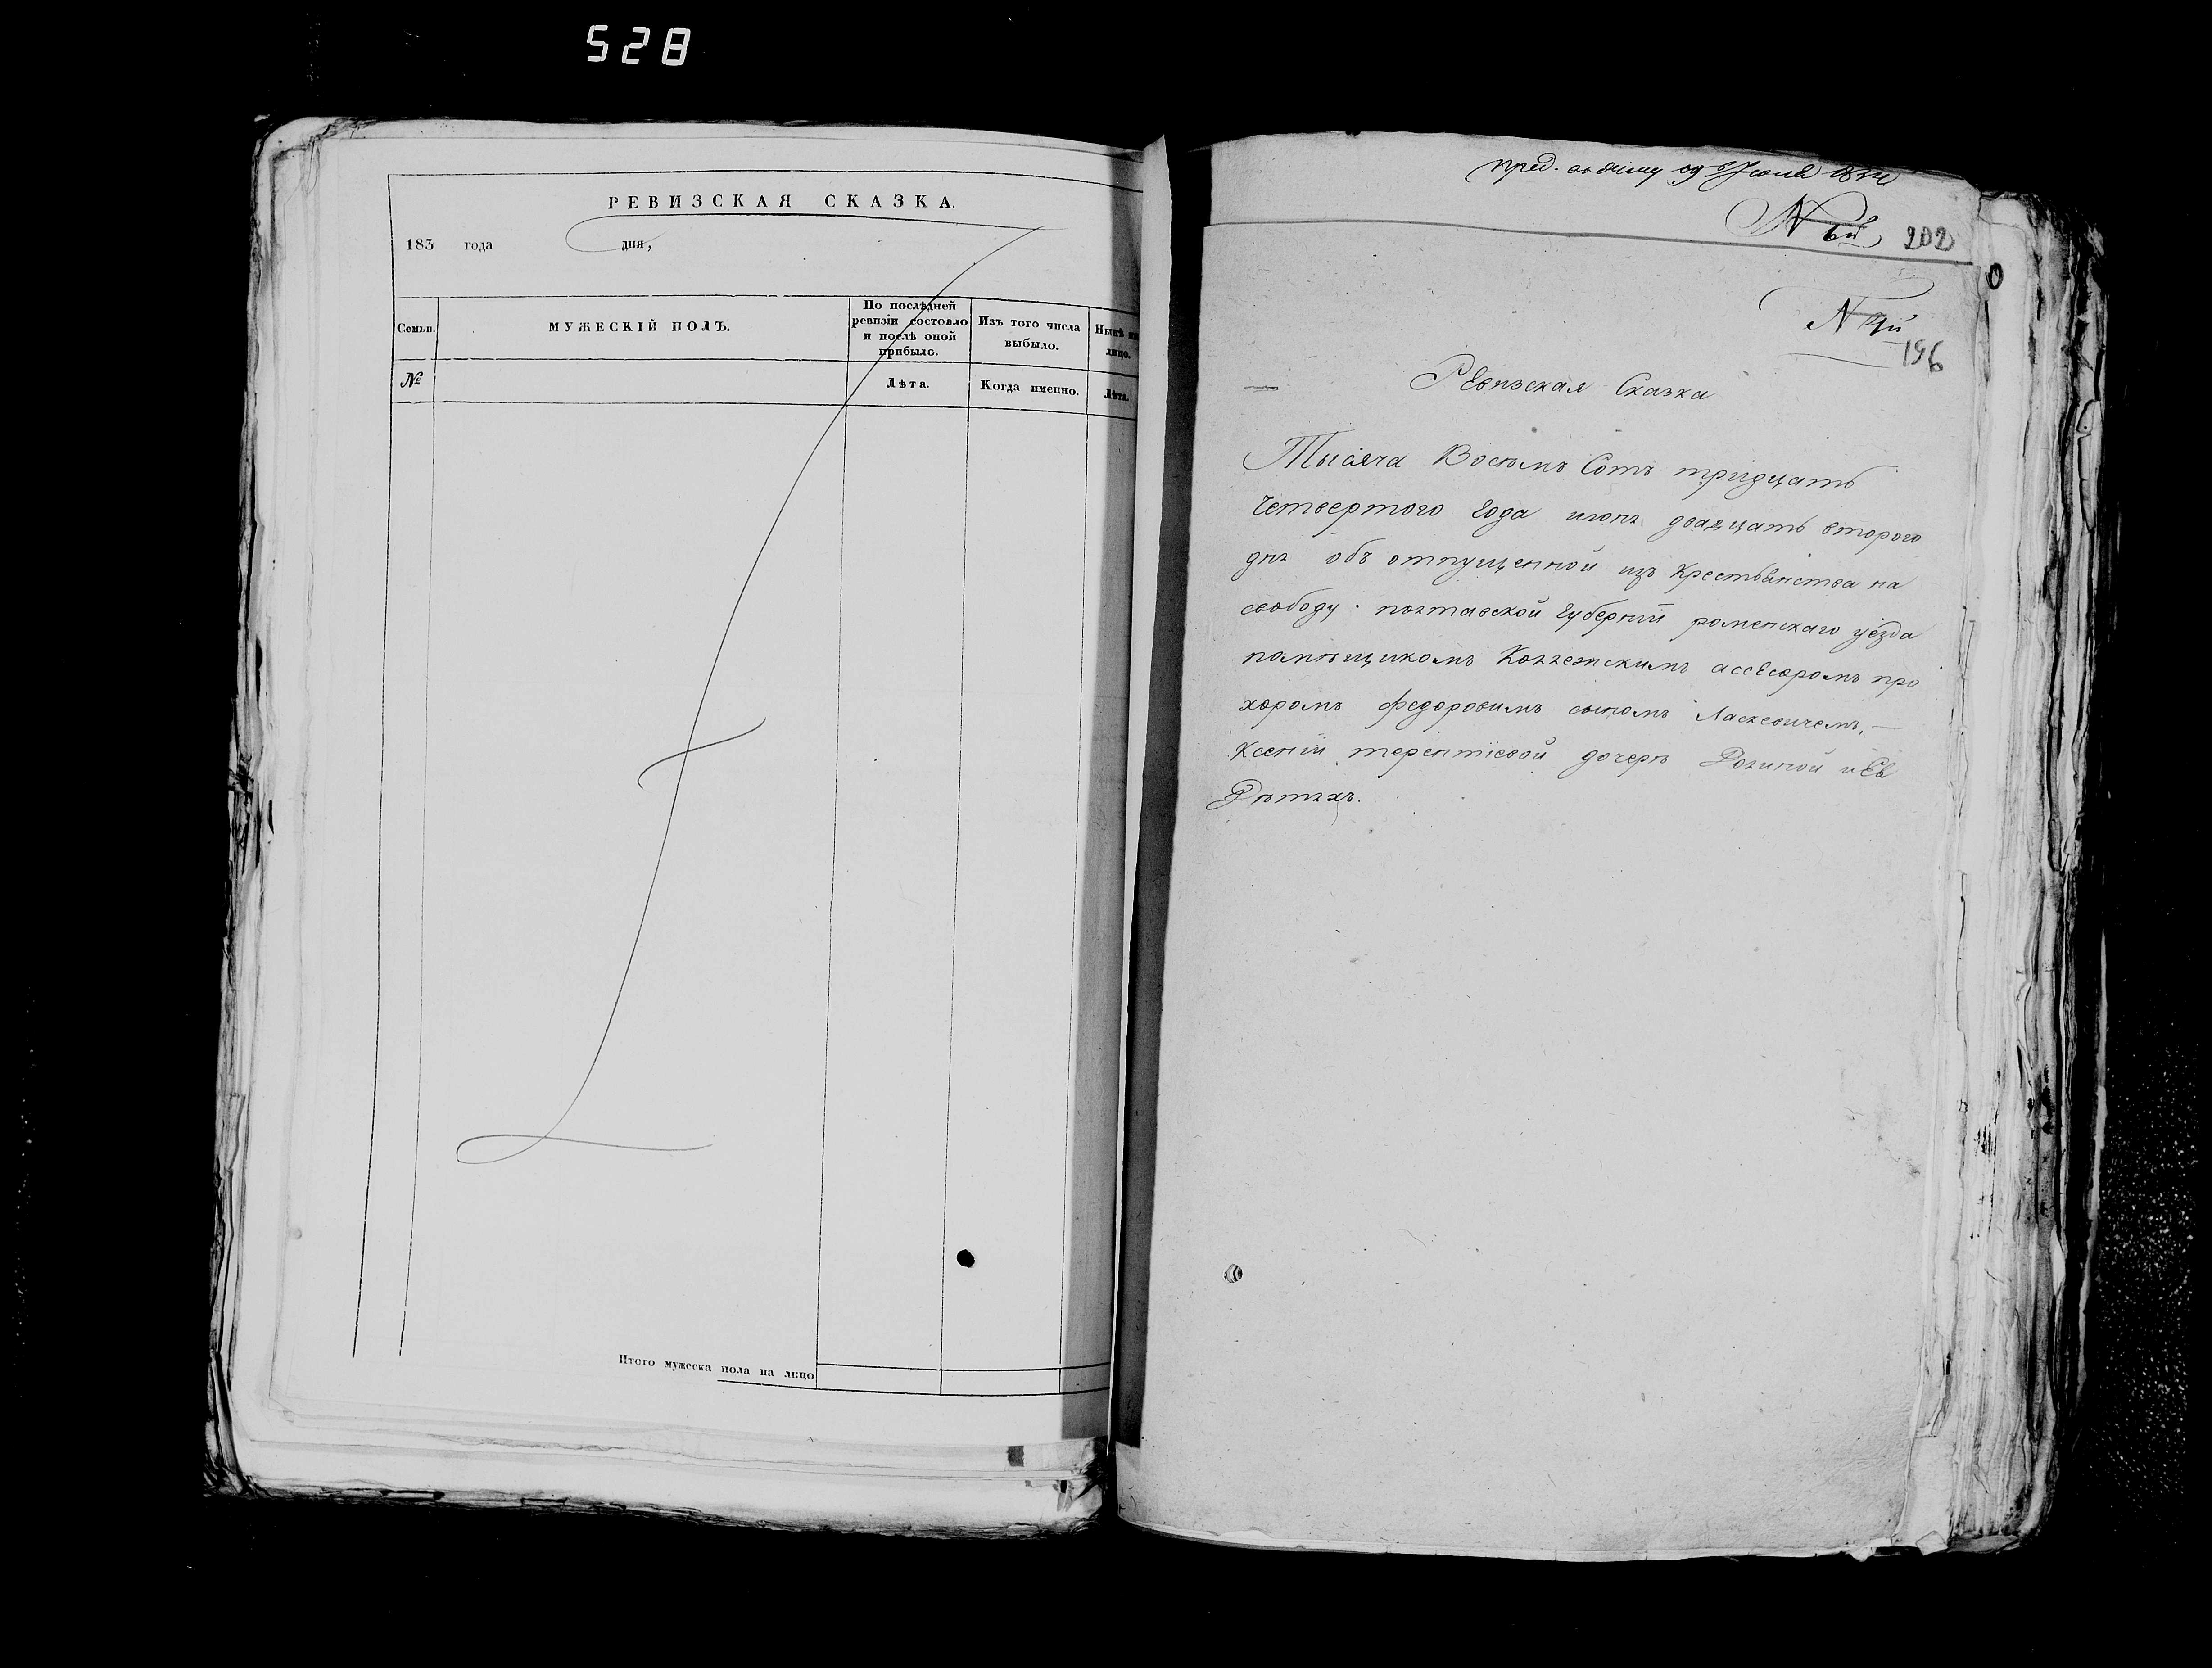 528
РЕВИЗСКАЯ СКАЗКА.
183 года дня,
Семьи.
МУЖЕСКІЙ ПОЛЪ.
По послѣдней ревизіи состояло и послѣ оной прибыло.
Изъ того числа выбыло.
Нынѣ на лицо.
№
Лѣта.
Когда именно.
Лѣта.
Итого мужеска пола на лицо
202
196
Ревизская Сказка
Тысяча Восемъ Сотъ тридцать
Четвертого Года июня двадцать второго
дня объ отпущенной изъ Крестьянства на
свободу полтавской Губерніи роменскаго уезда
помѣщикомъ Коллежскимъ ассесоромъ про
хоромъ федоровимъ сыномъ Ласкевичемъ, —
Ксеніи терентіевой дочерѣ и Ев
Дѣтяхъ.